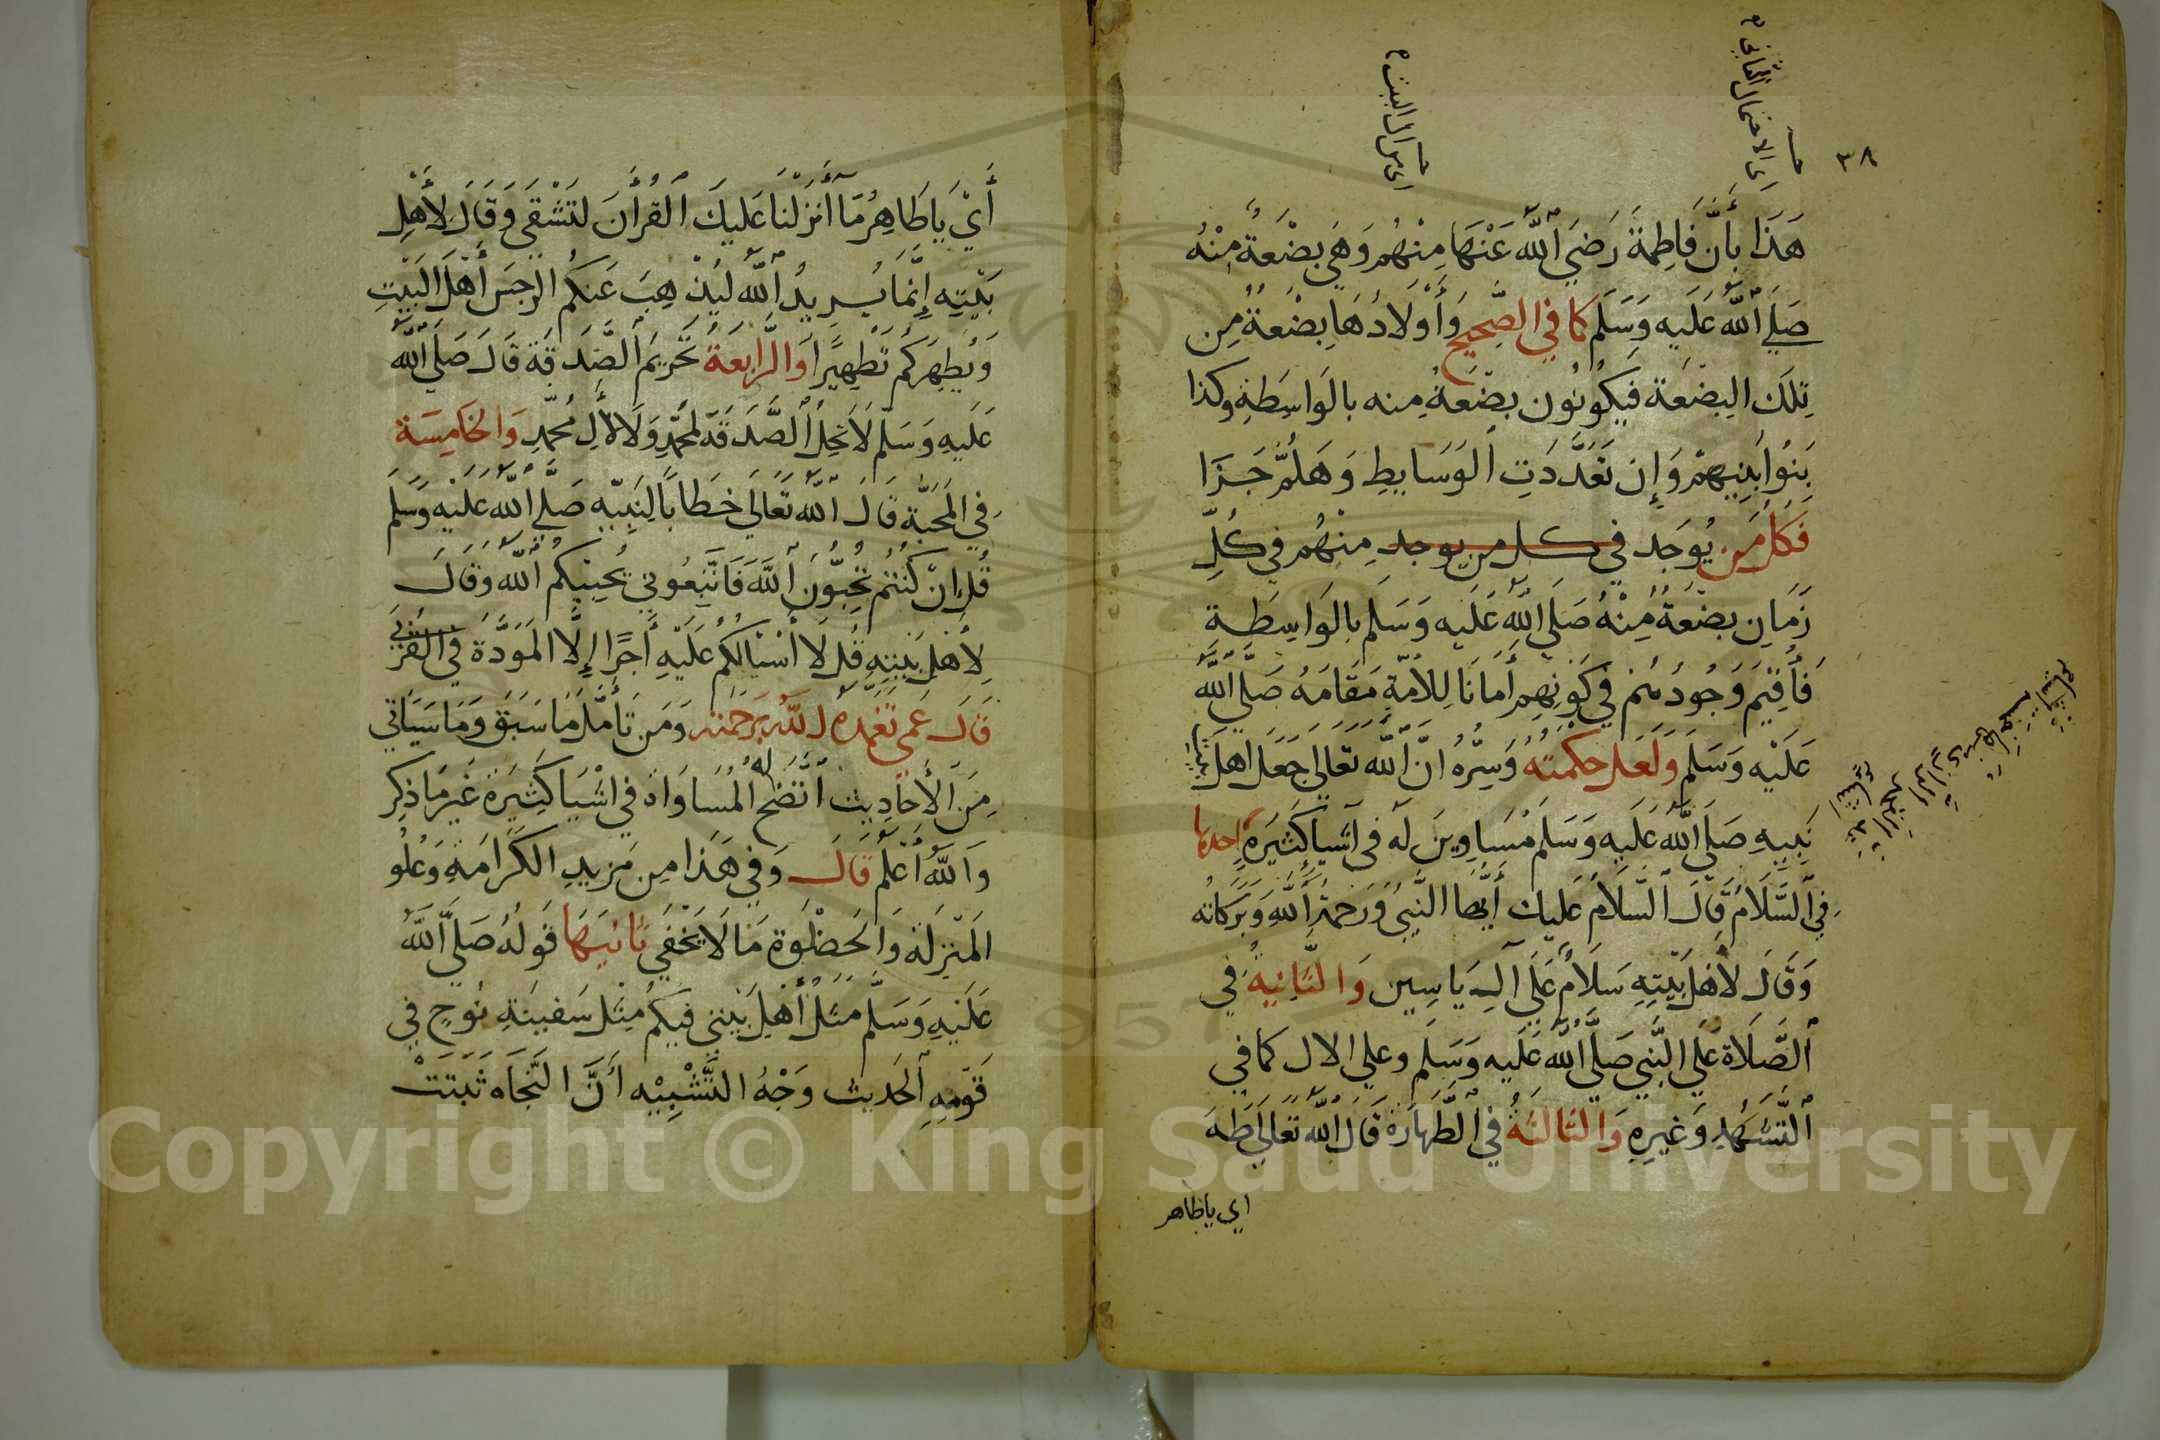 ٣٨
أي الاحتمال الثاني
أي من آل البيت
هَذَا بِأَنَّ فَاطِمَةَ رَضِيَ اللَّه عَنْهَا مِنْهُم وَهِيَ بِضْعَةٌ مِنْهُ
صَلَّى اللَّه عَلَيه وَسَلَّم كما في الصَّحِيحِ وَأَوْلَادُهَا بِضْعَةٌ مِن
تِلكَ البِضْعَة فَيكُونُون بِضْعَةً مِنه بالوَاسِطَةِ وكذا
بَنُوا بَنِيهِمْ وَإِن تَعَدَّدَتِ الوَسَايطِ وَهَلُمَّ جَرَّا
فَكل مَن يُوجَد في كل من يوجد مِنْهُم في كُلِّ
زَمَانٍ بِضْعَةٌ مِنْهُ صَلَّى اللَّه عَلَيه وَسَلم بِالوَاسِطَةِ
فَأُقِيمَ وُجُودُهُم في كَوْنِهِم أَمَانَا لِلأُمَّةِ مَقَامَهُ صَلَّى اللَّه
عَلَيْه وَسَلَّمَ وَلَعَل حِكْمَتَهُ وَسِرُّهُ انَّ اللَّه تَعَالَى جَعَلَ اهلَ بَيْتِ
نَبِيهِ صَلَى اللَّه عَلَيه وَسَلم مُسَاوِينَ لَه في اشْيَا كَثِيرَةٍ احدها
في السَّلَامُ قَالَ السَّلَامُ عَلَيك أَيُّهَا النَّبِيُّ وَرَحمَةُ اللَّهِ وَبَرَكَاتُه
وَقَالَ لأَهْلِ بَيْتِهِ سَلَامٌ عَلَى آلِ يَاسِين وَالثَّانِيَةُ في
الصَّلَاة عَلى النَّبِي صَلَّى اللَّه عَلَيه وَسَلم وعلى الال كما في
التَّشَهُّدِ وَغَيرِهِ وَالثَّالثَةُ في الطَّهَارَة قَالَ اللَّه تَعَالَى طَهَ
اي ياطاهر
أَيْ يا طَاهِرُ مَا أَنزَلْنَا عَلَيكَ القُرأَنَ لتَشْقَى وَقَالَ لأَهْلِ
بَيْتِهِ إِنَّمَا يُرِيدُ اللَّه لِيُذْهِبَ عَنكُم الرِّجسَ أَهْلَ البَيْتِ
وَيُطَهِرَكُم تَطْهِيرًا وَالرَّابِعَةُ تَحرِيمُ الصَّدَقَة قَالَ صَلَى اللَّه
عَلَيهِ وَسَلَّم لَا تَحِلُّ الصَّدَقَة لِمُحَمَّدٍ وَلَا لِألِ مُحمَّدٍ وَالخَامِسَة
في المَحَبَّة قَالَ اللَّه تَعَالَى خِطَابًا لِنَبِيّهِ صَلَّى اللَّه عَلَيْه وَسَلَمَ
قُل إنْ كُنتُم تُحِبُّونَ اللَّهَ فَاتَّبِعُوني يُحبِبْكُمُ اللَّه وَقَالَ
لِأَهْلِ بَيْتِهِ قُل لَا أَسْئَالُكُم عَلَيْهِ أَجرًا إِلَّا المَوَدَّةَ في القُرْبَى
قَالَ عَمي تَغَمَّدَهُ اللَّه برَحمَتهِ وَمَن تَأَمَّلَ مَا سَبَقَ وَمَا سَيَأتي
مِنَ الأَحَادِيث اتَّضَحَ لَه المُسَاوَاة في اشْيَا كَثِيرَة غَير مَا ذكِر
وَاللَّه أَعْلَمُ قَالَ وَفي هَذَا مِن مَزيدِ الكَرَامَةِ وَعُلُو
المَنزِلَةِ وَالحظْوَة مَا لَا يَخْفَى ثَانِيهَا قَولُهُ صَلَّى اللَّه
عَلَيهِ وَسَلَّم مَثَلُ أَهْلِ بَيْتي فيكُمْ مِثْلُ سَفِينَةِ نُوحٍ في
قَوْمِهِ الحَدِيث وَجْهُ التَّشْبِيْه أَنَّ النَّجَاهَ ثَبَتَتْ
Copyright © King Saud University
1957